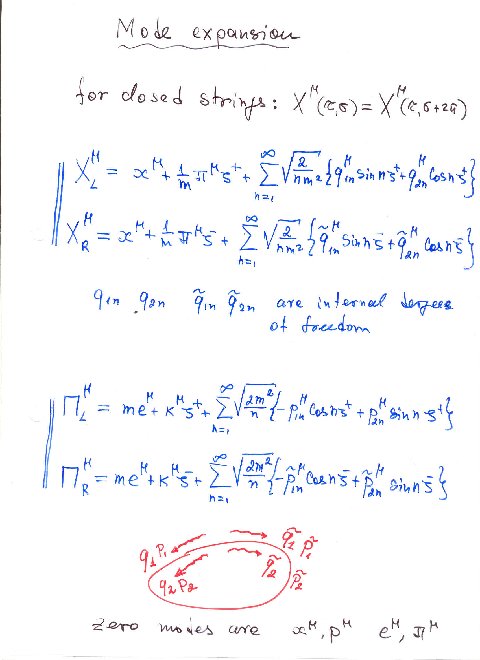 Mode expansion
for closed strings: X^μ(τ,σ) = X^μ(τ,σ+2π)
X_L^μ = x^μ + 1/m π^μ ξ^+ + Σ_{n=1}^∞ √(2/(nm²)) {q_{1n}^μ sin nξ^+ + q_{2n}^μ cos nξ^+}
X_R^μ = x^μ + 1/m π^μ ξ^- + Σ_{n=1}^∞ √(2/(nm²)) {q̃_{1n}^μ sin nξ^- + q̃_{2n}^μ cos nξ^-}
q_{1n} q_{2n} q̃_{1n} q̃_{2n} are internal degrees
of freedom
Π_L^μ = me^μ + κ^μ ξ^+ + Σ_{n=1}^∞ √(2m²/n) {-p_{1n}^μ cos nξ^+ + p_{2n}^μ sin nξ^+}
Π_R^μ = me^μ + κ^μ ξ^- + Σ_{n=1}^∞ √(2m²/n) {-p̃_{1n}^μ cos nξ^- + p̃_{2n}^μ sin nξ^-}
q_1 p_1 q̃_1 p̃_1
q_2 p_2 q̃_2 p̃_2
zero modes are x^μ, p^μ e^μ, π^μ